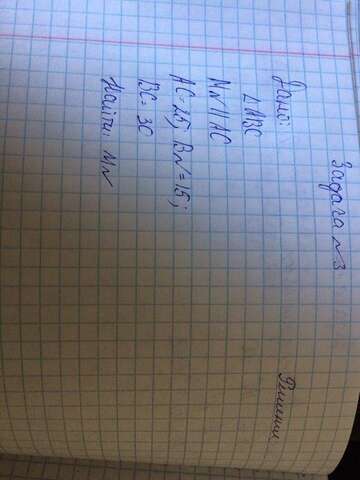 Задача №3
Дано: Решение
ΔABC
MN||AC
AC=25; BN=15;
BC= 30
Найти: MN